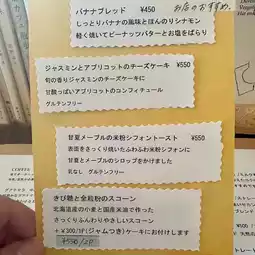 バナナブレッド ¥450
お店のおすすめ。
しっとりバナナの風味とほんのりシナモン
軽く焼いてピーナッツバターとお塩をぱらり
ジャスミンとアプリコットのチーズケーキ ¥550
旬の香りジャスミンのチーズケーキに
甘酸っぱいアプリコットのコンフィチュール
グルテンフリー
甘夏メープルの米粉シフォントースト ¥550
表面をさっくり焼いたふわふわ米粉シフォンに
甘夏とメープルのシロップをかけました
乳なし グルテンフリー
きび糖と全粒粉のスコーン
北海道産の小麦と国産米油で作った
さっくりふんわりやさしいスコーン
+¥300/1P(ジャムつき)ケーキにお付けします